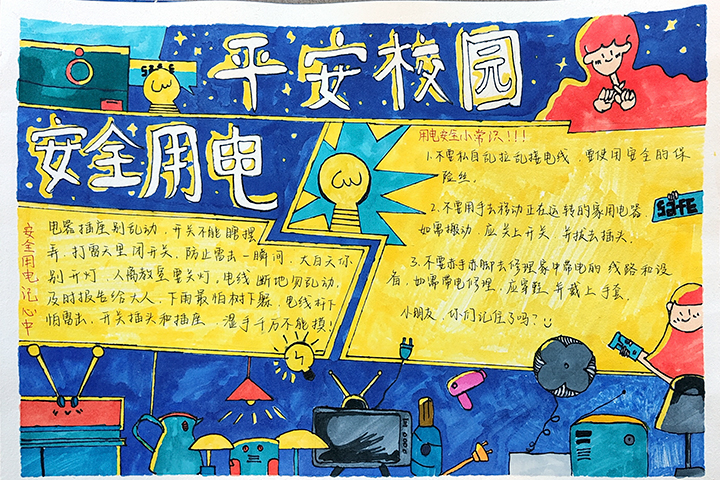 平安校园
SAFE
安全用电
安全用电记心中
电器插座别乱动，开关不能瞎摆
弄，打雷天里闭开关，防止雷击一瞬间，大白天你
别开灯，人离教室要关灯，电线断地勿乱动，
及时报告给大人，下雨最怕树下躲，电线杆下
怕雷击，开关插头和插座，湿手千万不能摸！
用电安全小常识！！！
1.不要私自乱拉乱接电线，要使用安全的保
险丝。
2.不要用手去移动正在运转的家用电器
如需搬动，应关上开关，并拔去插头。
3.不要赤手赤脚去修理家中带电的线路和设
备，如需带电修理，应穿鞋，并戴上手套。
小朋友，你们记住了吗？
SAFE